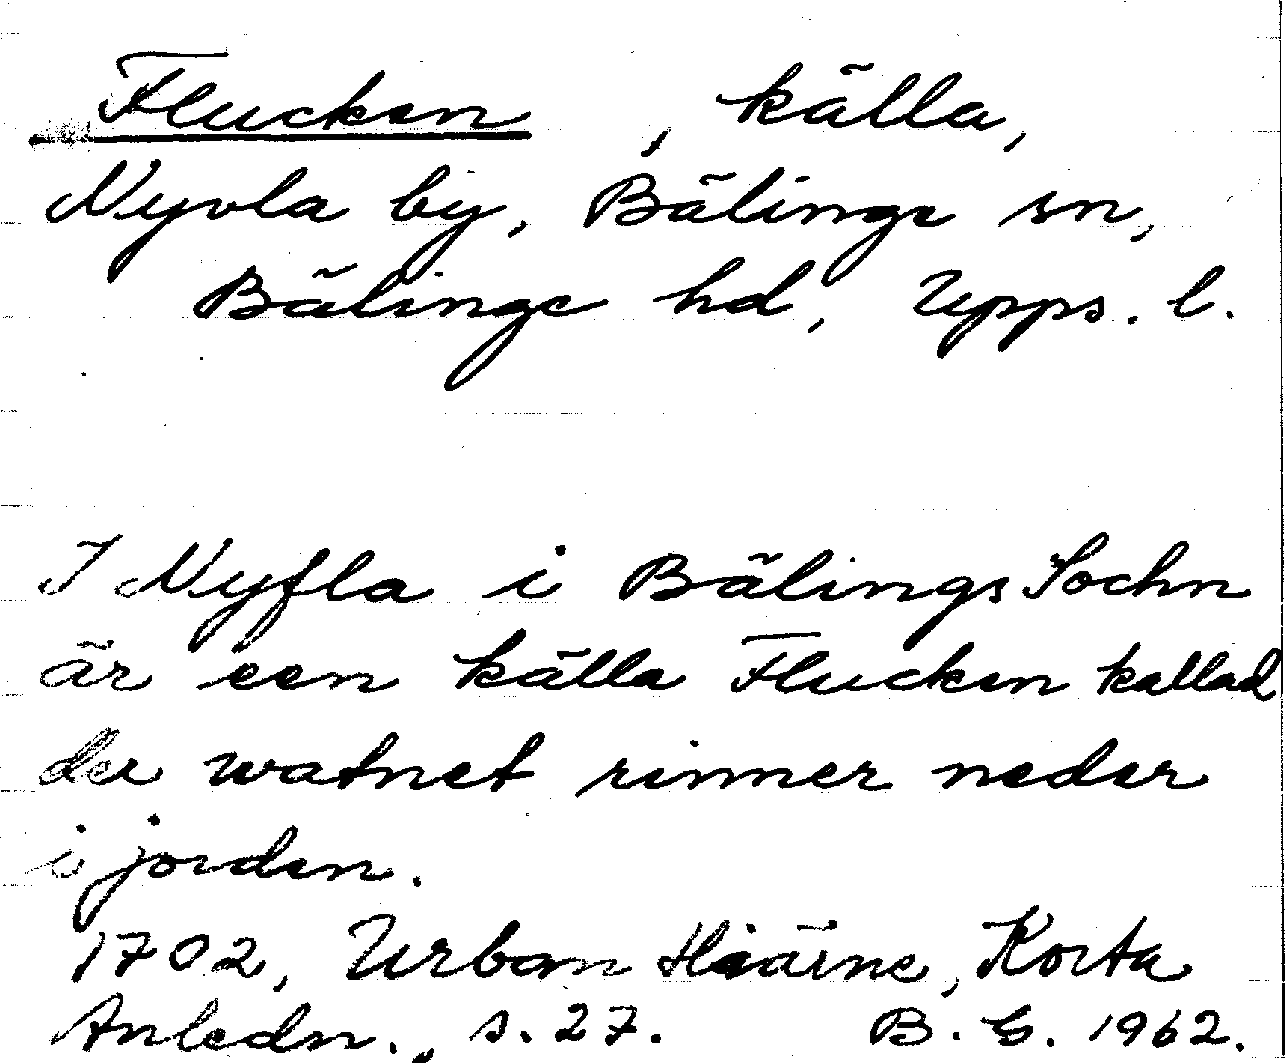 Flucken, källa,
Nyvla by, Bälinge sn,
Bälinge hd, Upps. l.
I Nyfla i Bälings Sochn
är een källa Flucken kallad
der watnet rinner neder
i jorden.
1702, Urban Hiärne, Korta
Anledn., s. 27. B. G. 1962.